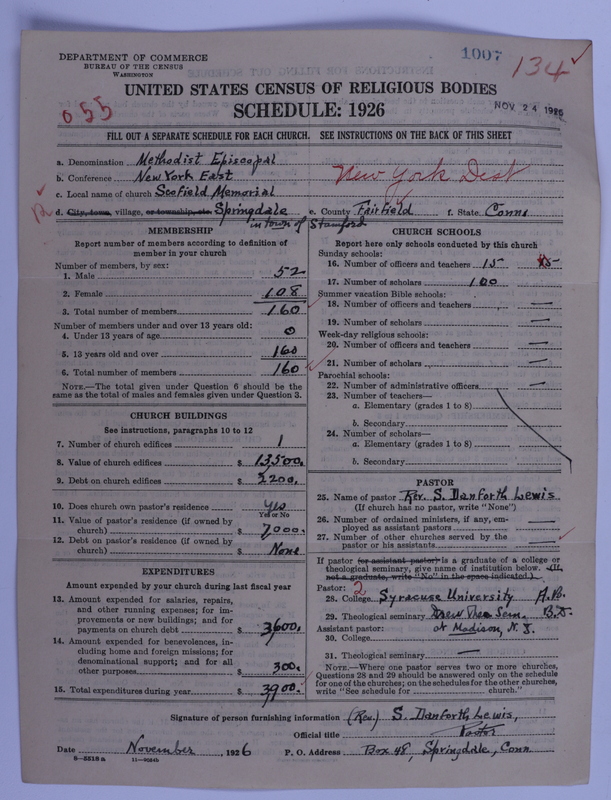 DEPARTMENT OF COMMERCE
BUREAU OF THE CENSUS
WASHINGTON
1007
134
UNITED STATES CENSUS OF RELIGIOUS BODIES
SCHEDULE: 1926
055
NOV 24 1926
FILL OUT A SEPARATE SCHEDULE FOR EACH CHURCH. SEE INSTRUCTIONS ON THE BACK OF THIS SHEET
a. Denomination Methodist Episcopal
b. Conference New York East
New York Dist
c. Local name of church Seefield Memorial
d. City, town, village, or township, etc. Springdale e. County Fairfield f. State Conn.
in town of Stamford
MEMBERSHIP
Report number of members according to definition of
member in your church
Number of members, by sex:
1. Male 52
2. Female 108
3. Total number of members 160
Number of members under and over 13 years old:
4. Under 13 years of age 0
5. 13 years old and over 160
6. Total number of members 160
NOTE.—The total given under Question 6 should be the
same as the total of males and females given under Question 3.
CHURCH BUILDINGS
See instructions, paragraphs 10 to 12
7. Number of church edifices 1
8. Value of church edifices $ 13,500.
9. Debt on church edifices $ 2200.
10. Does church own pastor's residence Yes
Yes or No
11. Value of pastor's residence (if owned by
church) $ 7000.
12. Debt on pastor's residence (if owned by
church) $ None
EXPENDITURES
Amount expended by your church during last fiscal year
13. Amount expended for salaries, repairs,
and other running expenses; for im-
provements or new buildings; and for
payments on church debt $ 3600.
14. Amount expended for benevolences, in-
cluding home and foreign missions; for
denominational support; and for all
other purposes $ 300.
15. Total expenditures during year $ 3900.
CHURCH SCHOOLS
Report here only schools conducted by this church
Sunday schools:
16. Number of officers and teachers 15 15
17. Number of scholars 100
Summer vacation Bible schools:
18. Number of officers and teachers —
19. Number of scholars —
Week-day religious schools:
20. Number of officers and teachers —
21. Number of scholars —
Parochial schools:
22. Number of administrative officers —
23. Number of teachers—
a. Elementary (grades 1 to 8)
b. Secondary
24. Number of scholars—
a. Elementary (grades 1 to 8)
b. Secondary
PASTOR
25. Name of pastor Rev. S. Danforth Lewis
(If church has no pastor, write "None")
26. Number of ordained ministers, if any, em-
ployed as assistant pastors —
27. Number of other churches served by the
pastor or his assistants —
If pastor (or assistant pastor) is a graduate of a college or
theological seminary, give name of institution below. (If
not a graduate, write "No" in the space indicated.)
Pastor: 2
28. College Syracuse University A.B.
29. Theological seminary Drew Theo. Sem. B.D.
Assistant pastor: at Madison, N. J.
30. College
31. Theological seminary —
NOTE.—Where one pastor serves two or more churches,
Questions 28 and 29 should be answered only on the schedule
for one of the churches; on the schedules for the other churches,
write "See schedule for church."
Signature of person furnishing information (Rev.) S. Danforth Lewis,
Official title Pastor
Date November, 1926 P. O. Address Box 48, Springdale, Conn.
8—5518a 11—9024b